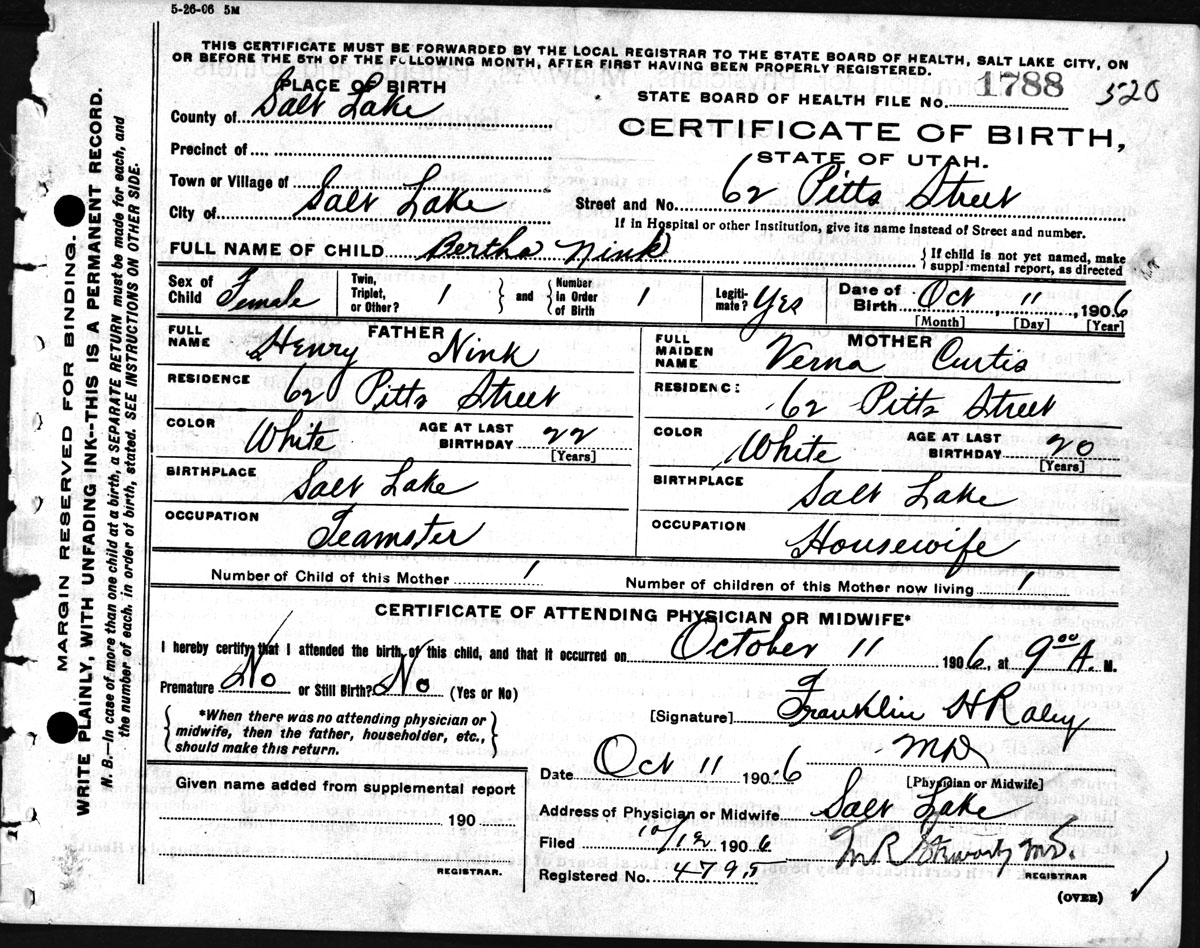 5-26-06 5M
THIS CERTIFICATE MUST BE FORWARDED BY THE LOCAL REGISTRAR TO THE STATE BOARD OF HEALTH, SALT LAKE CITY, ON
OR BEFORE THE 5TH OF THE FOLLOWING MONTH, AFTER FIRST HAVING BEEN PROPERLY REGISTERED.
PLACE OF BIRTH
County of Salt Lake
Precinct of
Town or Village of
City of Salt Lake
STATE BOARD OF HEALTH FILE No. 1788 520
CERTIFICATE OF BIRTH,
STATE OF UTAH.
Street and No. 62 Pitts Street
If in Hospital or other Institution, give its name instead of Street and number.
FULL NAME OF CHILD Bertha Nink
{If child is not yet named, make
supplmental report, as directed
Sex of Child Female
Twin, Triplet, or Other? 1 } and { Number in Order of Birth 1
Legitimate? Yes
Date of Birth Oct 11, 1906
[Month] [Day] [Year]
FATHER
FULL NAME Henry Nink
RESIDENCE 62 Pitts Street
COLOR White AGE AT LAST BIRTHDAY 22
[Years]
BIRTHPLACE Salt Lake
OCCUPATION Teamster
MOTHER
FULL MAIDEN NAME Verna Curtis
RESIDENCE 62 Pitts Street
COLOR White AGE AT LAST BIRTHDAY 20
[Years]
BIRTHPLACE Salt Lake
OCCUPATION Housewife
Number of Child of this Mother 1 Number of children of this Mother now living 1
CERTIFICATE OF ATTENDING PHYSICIAN OR MIDWIFE*
I hereby certify that I attended the birth of this child, and that it occurred on October 11 1906, at 9 00 A. M.
Premature No or Still Birth? No (Yes or No)
{*When there was no attending physician or
midwife, then the father, householder, etc.,
should make this return.}
[Signature] Franklin H Raley
MD
[Physician or Midwife]
Date Oct 11 1906
Address of Physician or Midwife Salt Lake
Filed 10/12 1906
M R Stewart MD.
REGISTRAR
Registered No. 4795
(OVER)
Given name added from supplemental report
190
REGISTRAR.
MARGIN RESERVED FOR BINDING.
WRITE PLAINLY, WITH UNFADING INK--THIS IS A PERMANENT RECORD.
N. B.—In case of more than one child at a birth, a SEPARATE RETURN must be made for each, and
the number of each, in order of birth, stated. SEE INSTRUCTIONS ON OTHER SIDE.